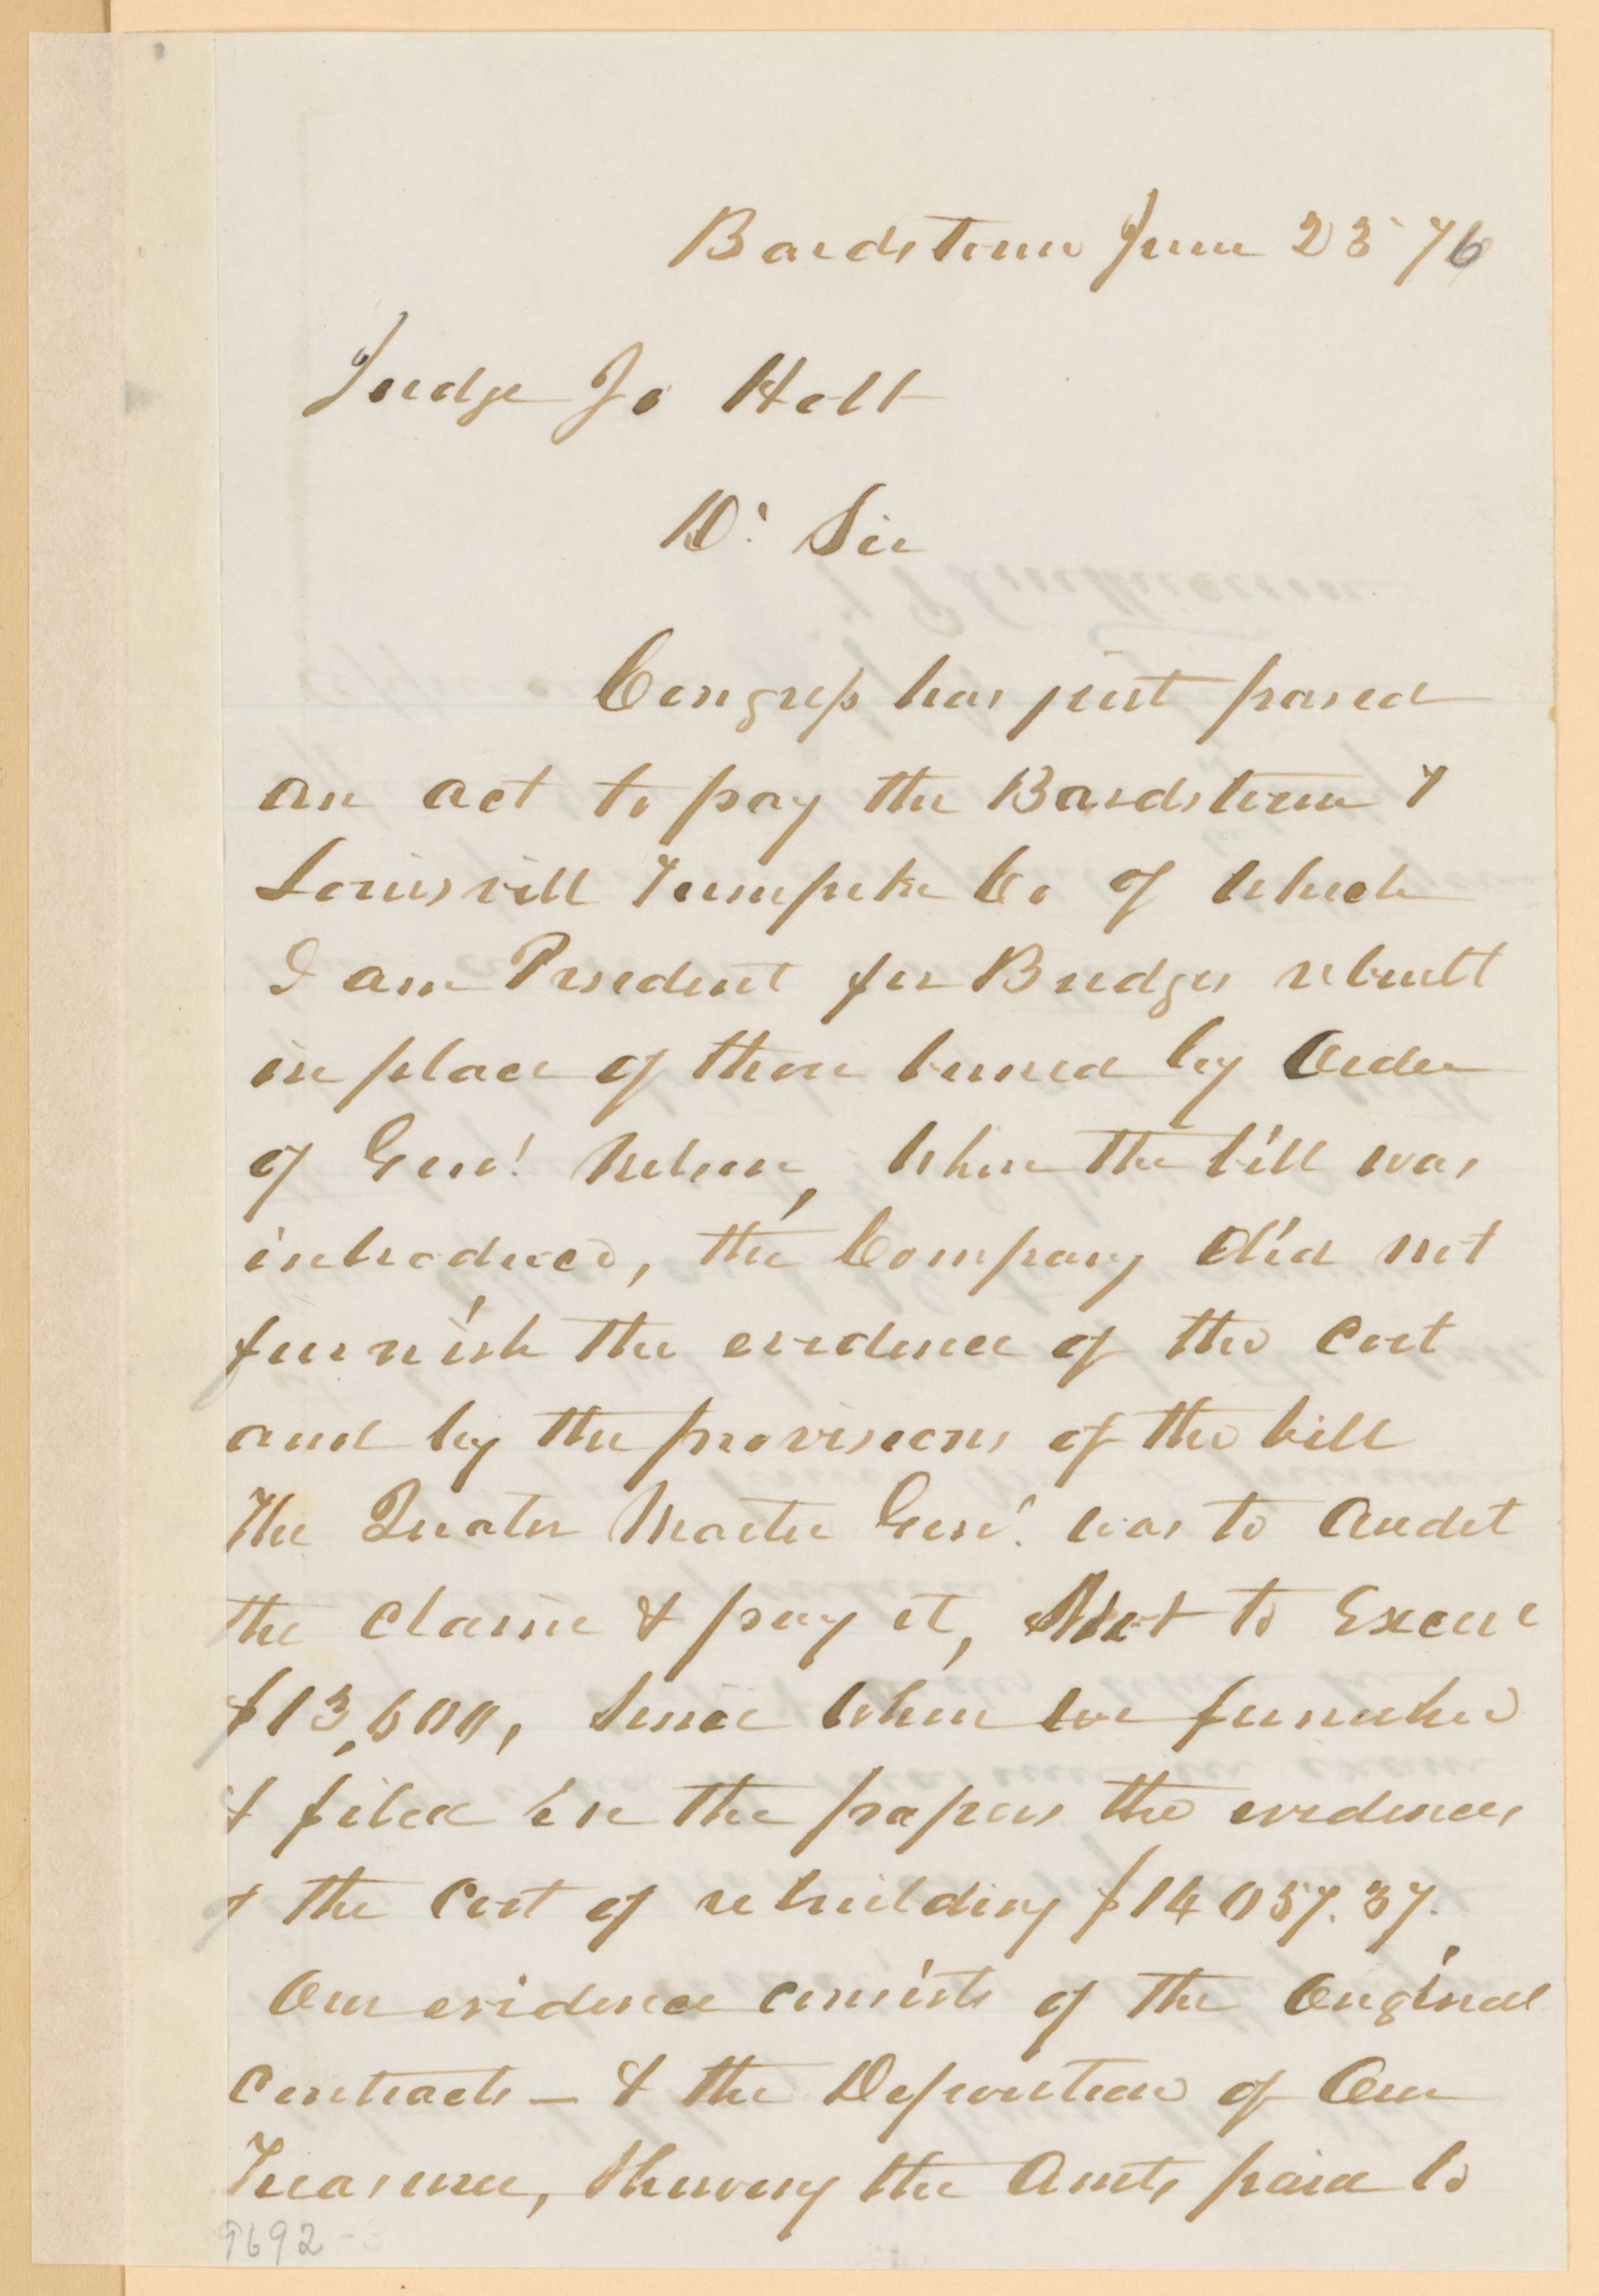 Bardstown June 23 76
Judge Jo Holt
Dr Sir
Congress has just passed
an act to pay the Bardstown &
Louisvill Turnpike Co of which
I am President for Bridges rebuilt
in place of those burned by Order
of Genl Nelson, when the bill was
introduced, the Company did not
furnish the evidence of the Cost
and by the provisions of the bill
The Quater Master Genl. was to Audit
the claim & pay it, Not to Exceed
$13,600, Since when we furnished
& filed in the papers the evidences
of the Cost of rebuilding $14057.37.
Our evidence consists of the Original
Contracts - & the Deposition of Our
Treasurer, Showing the Amts paid to
9692-3